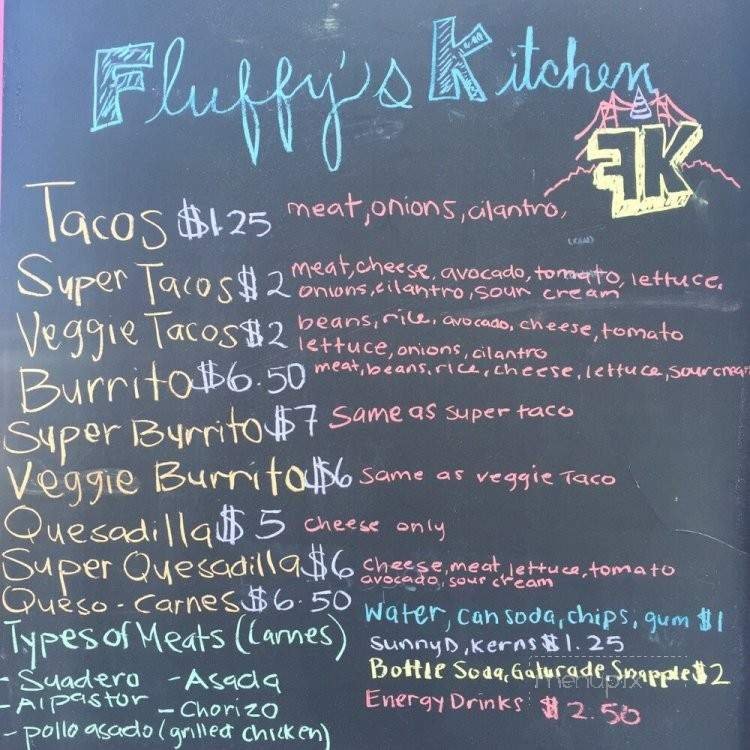 Fluffy's Kitchen
FK
Tacos $1.25 meat, onions, cilantro,
Super Tacos $2 meat, cheese, avocado, tomato, lettuce,
onions, cilantro, sour cream
Veggie Tacos $2 beans, rice, avocado, cheese, tomato
lettuce, onions, cilantro
Burrito $6.50 meat, beans, rice, cheese, lettuce, sour cream
Super Burrito $7 same as super taco
Veggie Burrito $6 same as veggie Taco
Quesadilla $5 cheese only
Super Quesadilla $6 cheese, meat, lettuce, tomato
avocado, sour cream
Queso-Carnes $6.50
Water, can soda, chips, gum $1
Types of Meats (Carnes)
SunnyD, Kerns $1.25
- Suadero - Asada
Bottle Soda, Gaturade Snapple $2
- Al pastor - Chorizo
Energy Drinks $2.50
- pollo asado (grilled chicken)
menupix